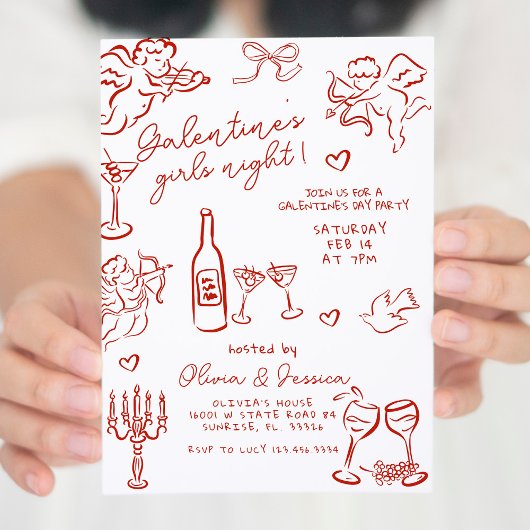 Galentine's
girls night!
JOIN US FOR A
GALENTINE'S DAY PARTY
SATURDAY
FEB 14
AT 7PM
hosted by
Olivia & Jessica
OLIVIA'S HOUSE
16001 W STATE ROAD 84
SUNRISE, FL. 33326
RSVP TO LUCY 123.456.3334